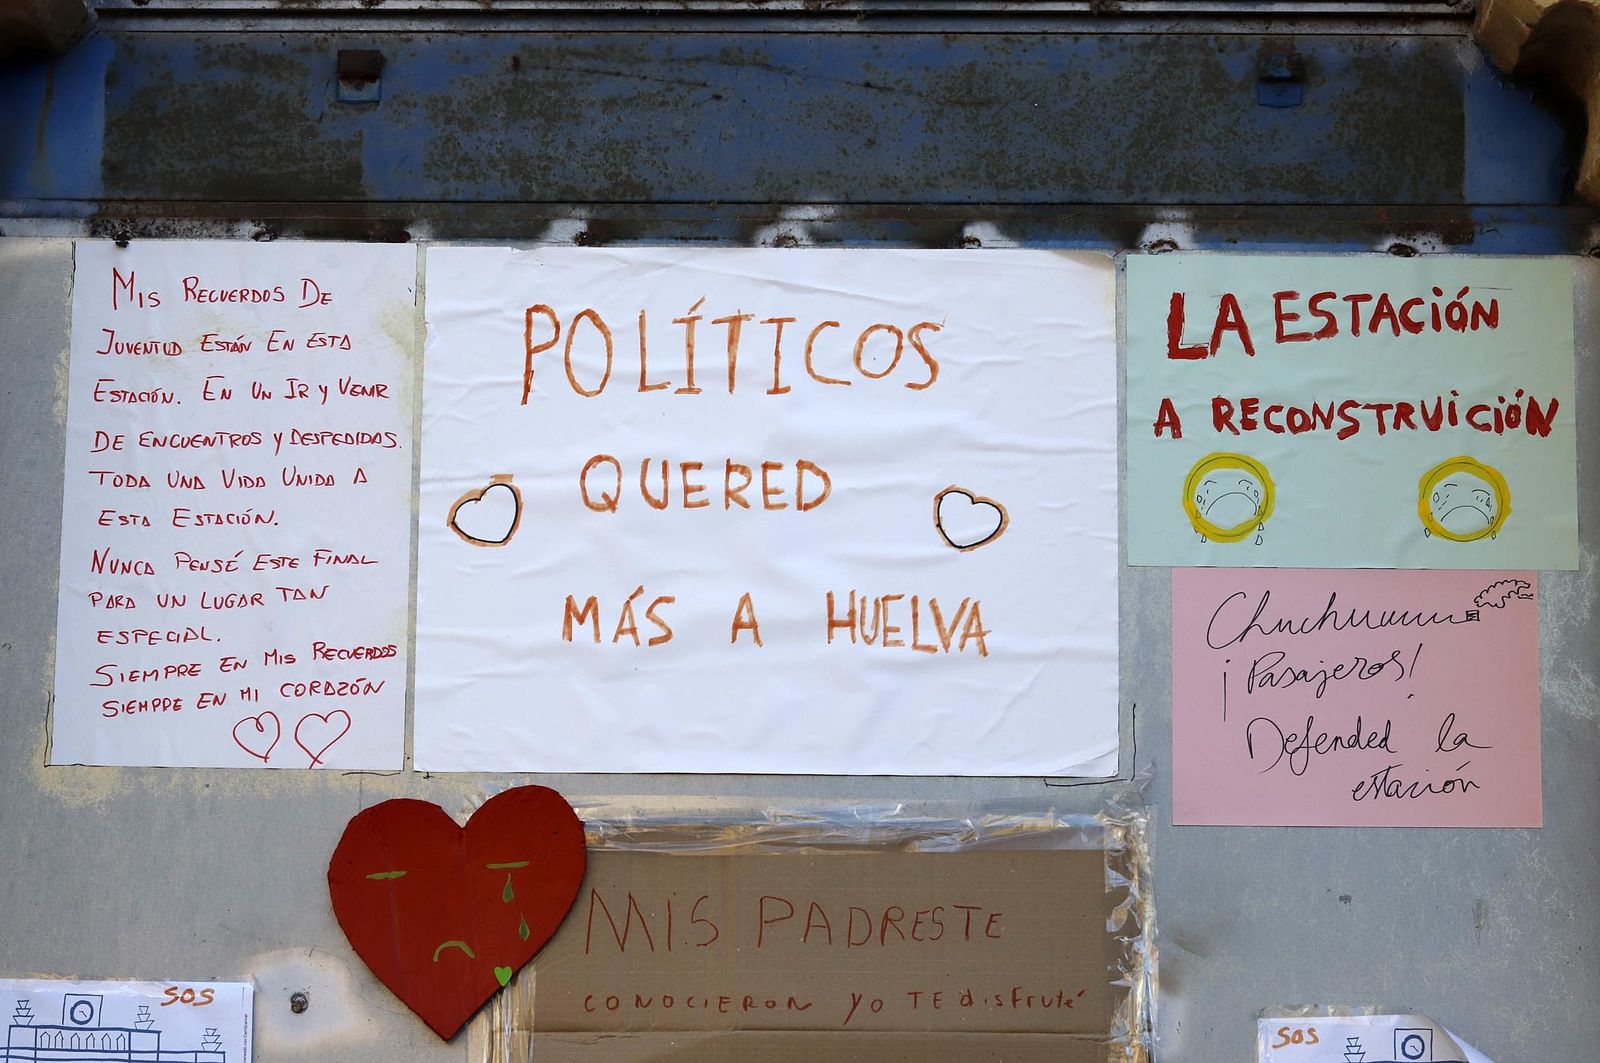 MIS RECUERDOS DE
JUVENTUD ESTÁN EN ESTA
ESTACIÓN. EN UN IR Y VENIR
DE ENCUENTROS Y DESPEDIDAS.
TODA UNA VIDA UNIDA A
ESTA ESTACIÓN.
NUNCA PENSÉ ESTE FINAL
PARA UN LUGAR TAN
ESPECIAL.
SIEMPRE EN MIS RECUERDOS
SIEMPRE EN MI CORAZÓN
POLÍTICOS
QUERED
MÁS A HUELVA
LA ESTACIÓN
A RECONSTRUICIÓN
Chuchuuuuu
¡Pasajeros!
Defended la
estación
MIS PADRESTE
CONOCIERON YO TE disfruté
SOS
SOS